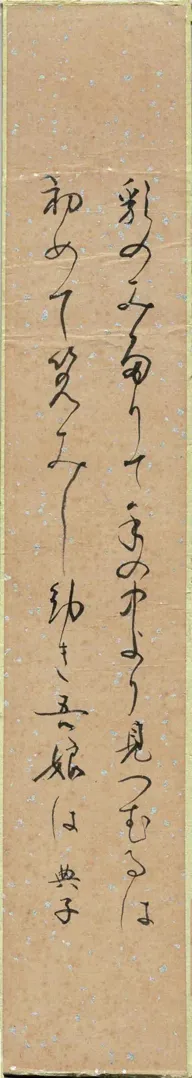 乳のみたりて手の中より見つむるは
初めて笑みし幼き吾娘は 典子